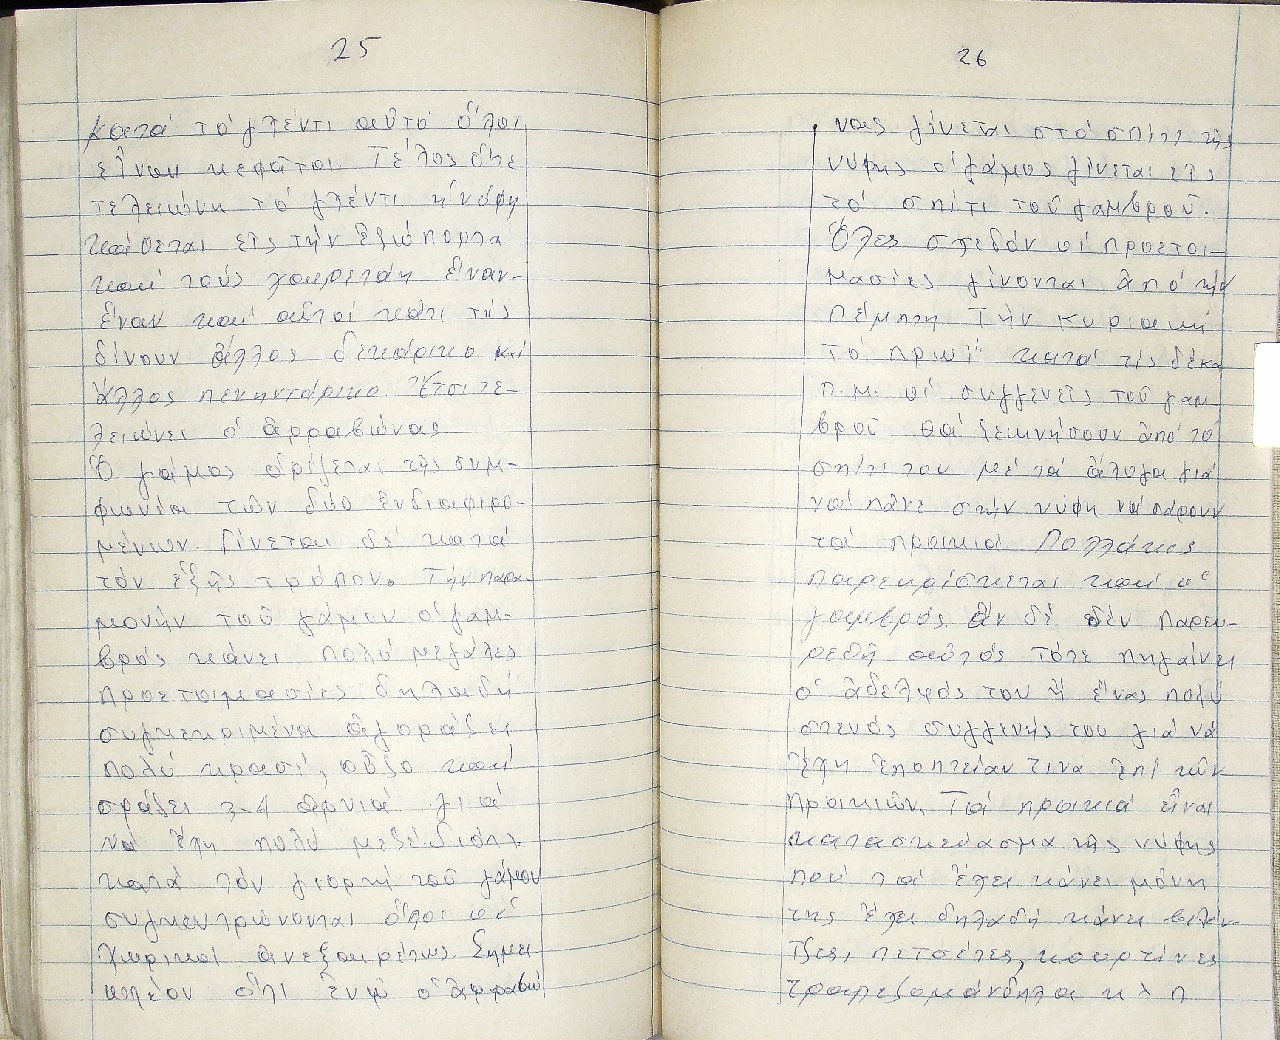 25
κατά τό γλέντι αὐτό ὅλοι
εἶναι κεφᾶτοι. Τέλος ὅτε
τελειώνη τό γλέντι ἡ νύφη
κάθεται εἰς τήν ἐξώπορτα
καί τούς χαιρετάη ἕναν-
ἕναν καί αὐτοί κάτι τῆς
δίνουν ἄλλος δεκάρικο καί
ἄλλος πενηντάρικο. Ἔτσι τε-
λειώνει ὁ ἀρραβώνας
Ὁ γάμος ὁρίζεται τῆς συμ-
φωνία τῶν δύο ἐνδιαφερο-
μένων. Γίνεται δέ κατά
τόν ἑξῆς τρόπον. Τήν παρα-
μονήν τοῦ γάμου ὁ γαμ-
βρός κάνει πολύ μεγάλες
προετοιμασίες δηλαδή
συγκεκριμένα ἀγοράζει
πολύ κρασί, οὖζο καί
σφάζει 3-4 ἀρνιά γιά
νά ἔχη πολύ μεζέ διότι
κατά τόν γιορτή τοῦ γάμου
συγκεντρώνονται ὅλοι οἱ
χωρικοί ἀνεξαιρέτως. Σημει
ωτέον ὅτι ἐνῷ ὁ ἀρραβώ
26
νας γίνεται στό σπίτι τῆς
νύφης ὁ γάμος γίνεται εἰς
τό σπίτι τοῦ γαμβροῦ.
Ὅλες σχεδόν οἱ προετοι-
μασίες γίνονται ἀπό τήν
Πέμπτη Τήν Κυριακή
τό πρωί κατά τίς δέκα
π.μ. οἱ συγγενεῖς τοῦ γαμ
βροῦ θά ξεκινήσουν ἀπό τό
σπίτι του μέ τά ἄλογα γιά
νά πᾶνε στήν νύφη νά πάρουν
τά προικιά Πολλάκις
παρευρίσκεται καί ὁ
γαμβρός ἄν δέ δέν παρευ-
ρεθῆ αὐτός τότε πηγαίνει
ὁ ἀδελφός του ἤ ἕνας πολύ
στενός συγγενής του γιά νά
ἔχη ἐποπτείαν τινα ἐπί τῶν
προικιῶν. Τά προικιά εἶναι
κατασκεύασμα τῆς νύφης
πού τά ἔχει κάνει μόνη
της ἔχει δηλαδή κάνει βελέν-
τζες, πετσέτες, κουρτίνες
τραπεζομάνδηλα κ λ π